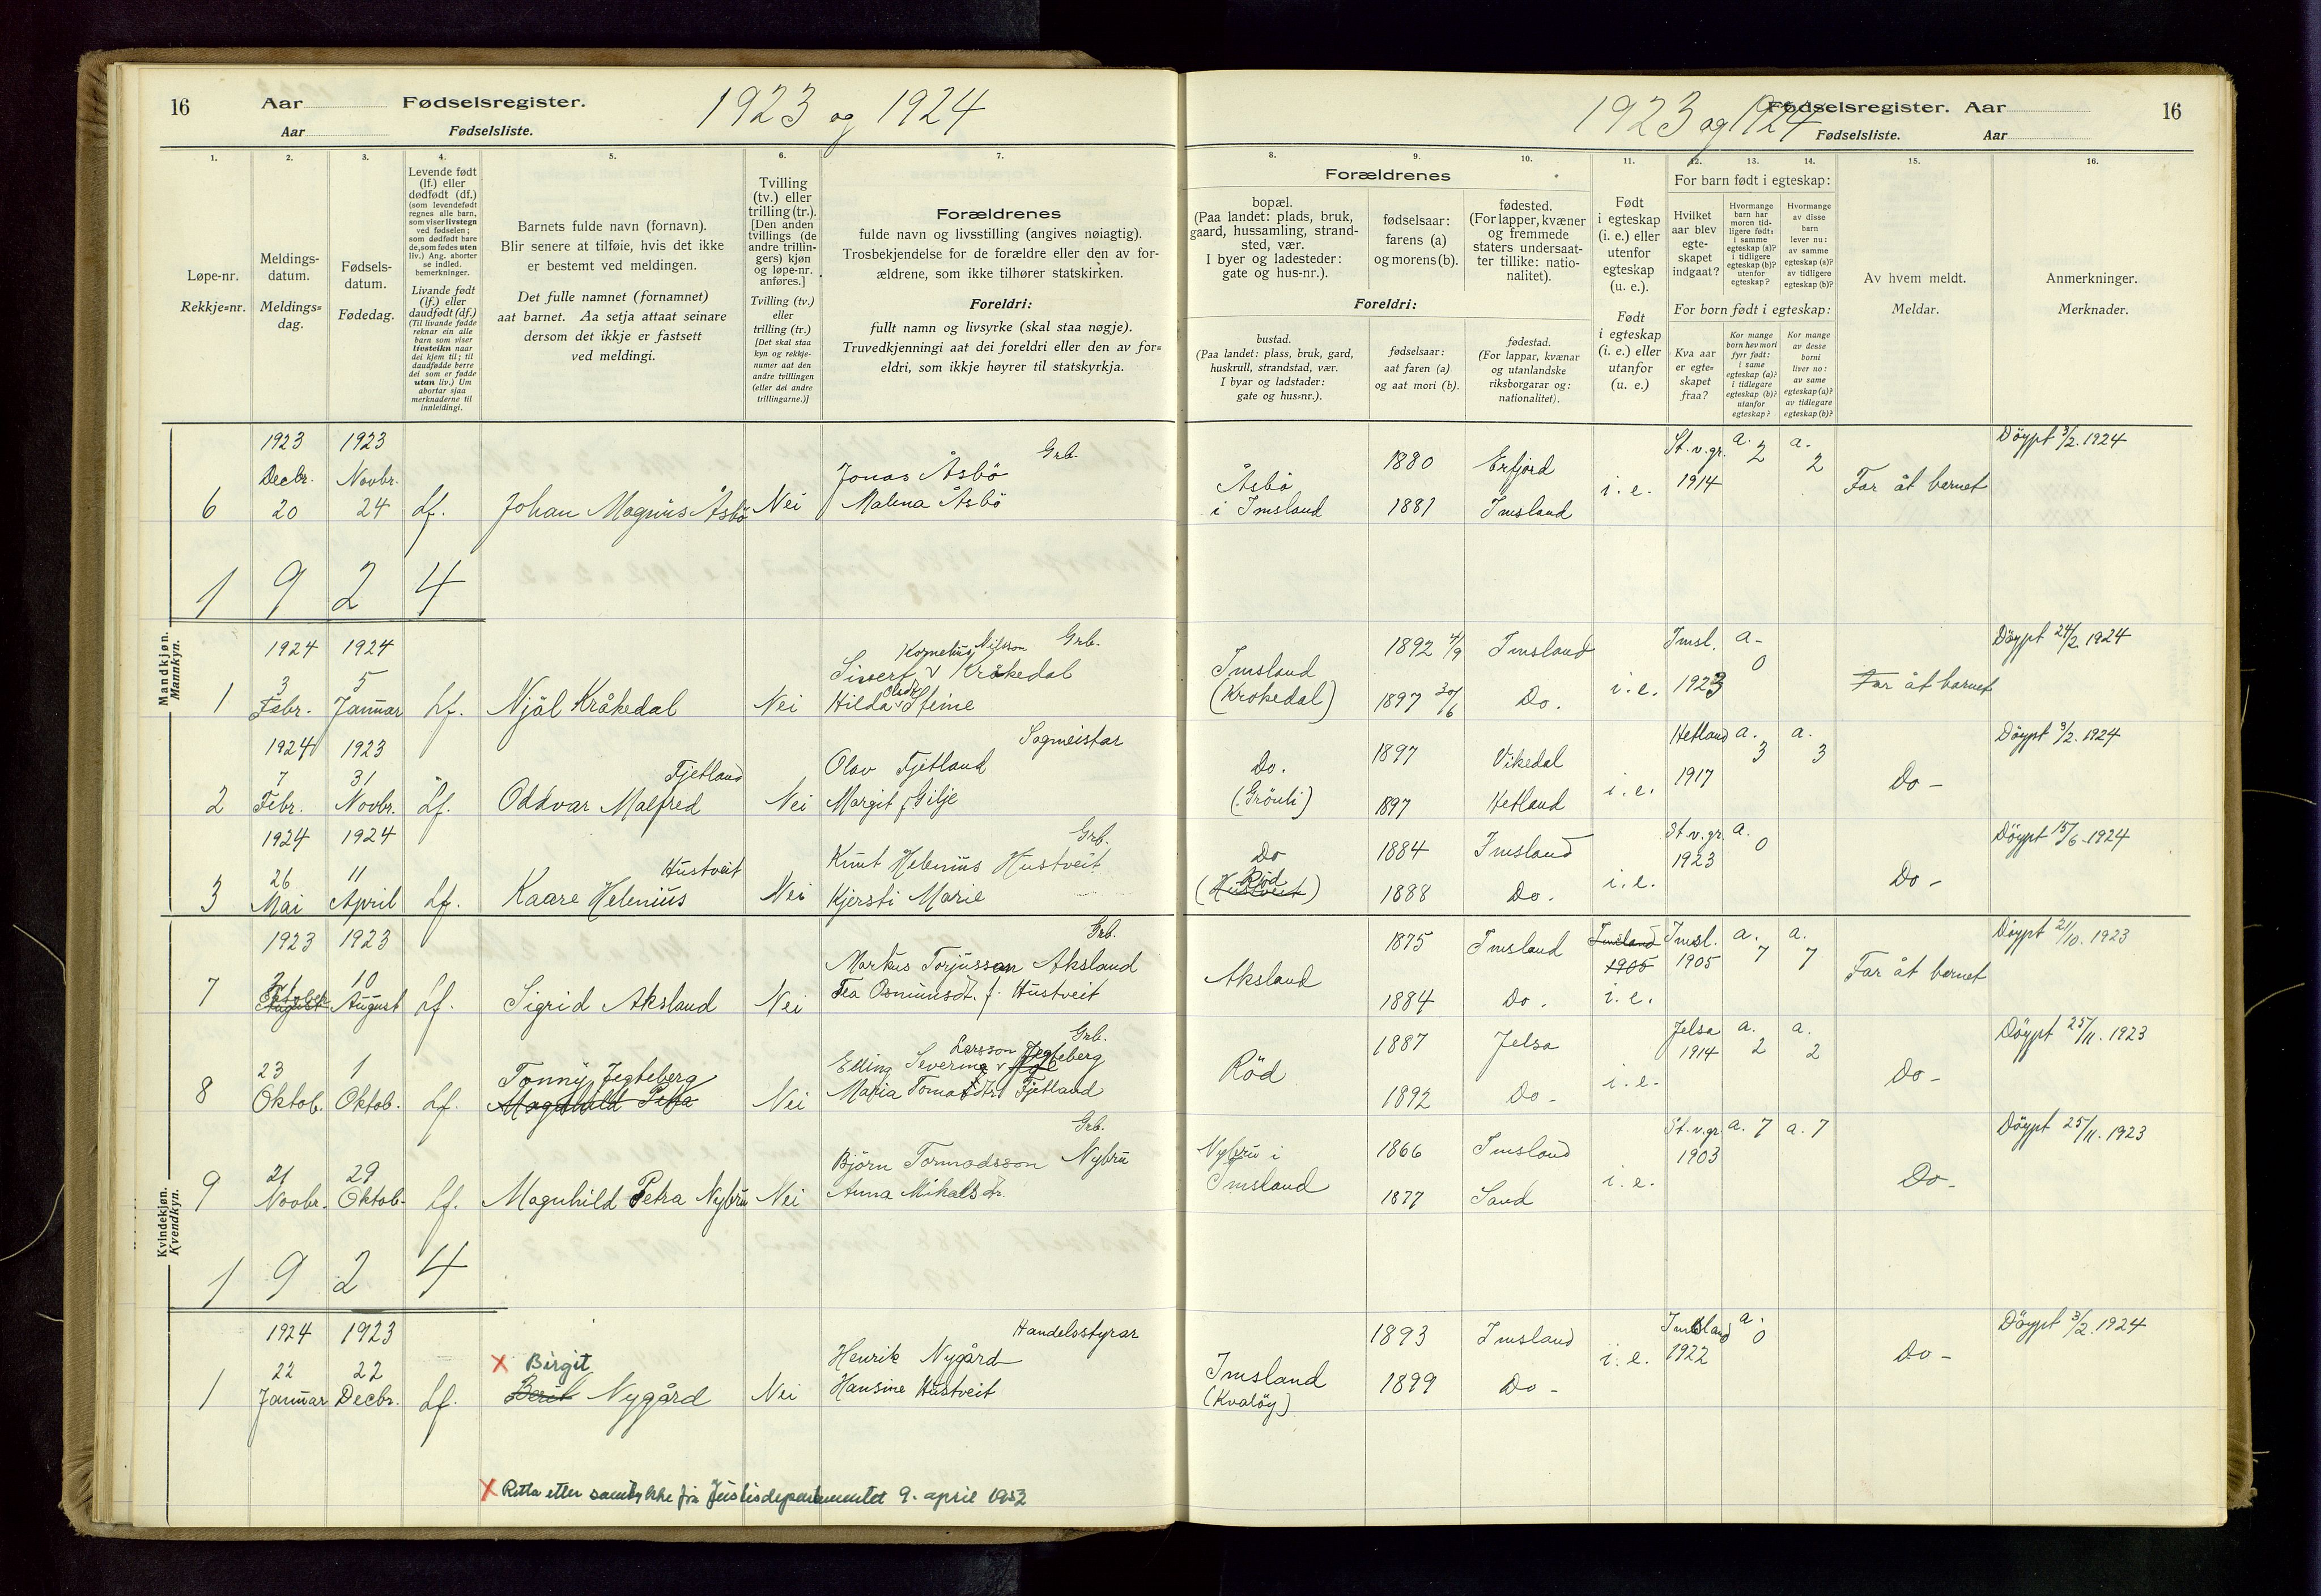 16 Aar Fødselsregister. 1923 og 1924
Aar Fødselsliste.
1. 2. 3. 4. 5. 6. 7.
Løpe-nr.
Rekkje=nr.
Meldings-
datum.
Meldings=
dag.
Fødsels-
datum.
Fødedag.
Levende født
(lf.) eller
dødfødt (df.)
(som levendefødt
regnes alle barn,
som viser livstegn
ved fødselen;
som dødfødt bare
de, som fødes uten
liv.) Ang. aborter
se indled.
bemerkninger.
Livande født
(lf.) eller
daudfødt (df.)
(Til livande fødde
reknar ein alle
barn som viser
livsteikn naar
dei kjem til; til
daudfødde berre
dei som er fødde
utan liv.) Um
abortar sjaa
merknaderne til
innleidingi.
Barnets fulde navn (fornavn).
Blir senere at tilføie, hvis det ikke
er bestemt ved meldingen.
Det fulle namnet (fornamnet)
aat barnet. Aa setja attaat seinare
dersom det ikkje er fastsett
ved meldingi.
Tvilling
(tv.) eller
trilling (tr.).
[Den anden
tvillings (de
andre trillin-
gers) kjøn
og løpe-nr.
anføres.]
Tvilling (tv.)
eller
trilling (tr.)
[Det skal staa
kyn og rekkje-
numer aat den
andre tvillingen
(eller dei andre
trillingarne.)]
Forældrenes
fulde navn og livsstilling (angives nøiagtig).
Trosbekjendelse for de forældre eller den av for-
ældrene, som ikke tilhører statskirken.
Foreldri:
fullt namn og livsyrke (skal staa nøgje).
Truvedkjenningi aat dei foreldri eller den av for=
eldri, som ikkje høyrer til statskyrkja.
Mandkjøn.
Mannkyn.
1923 1923
Decbr. Novbr. Grb.
6 20 24 Lf. Johan Magnus Åsbö Nei Jonas Åsbö
Malena Åsbö
1 9 2 4
1924 1924 Kornelius Nilsson Grb.
3 5 Sivert v Kråkedal
1 Febr. Januar Lf. Njål Kråkedal Nei Hilda Stine
1924 1923 Sagmeistar
7 31 Fjetland Olav Fjetland
2 Febr. Novbr. Lf. Oddvar Malfred Nei Margit f. Gilje
1924 1924 Grb.
26 11 Hustveit Knut Helenius Hustveit
3 Mai April Lf. Kaare Helenius Nei Kjersti Marie
Kvindekjøn.
Kvendkyn.
1923 1923 Grb.
21 10 Markus Torjusson Aksland
7 August Lf. Sigrid Aksland Nei Tea Osmundsdt. f. Hustveit
23 1 Larsson Jegteberg Grb.
Tonny Jegteberg Elling Severin
8 Oktob. Oktob. Lf. Magnhild Petra Nei Maria Tomasdtr Fjetland
21 29 Grb.
Björn Tormodsson Nybru
9 Novbr. Oktob. Lf. Magnhild Petra Nybru Nei Anna Mikalsdr.
1 9 2 4
1924 1923 Handelsstyrar
22 22 x Birgit Henrik Nygård
1 Januar Decbr. Lf. Berit Nygård Nei Hansine Hustveit
x Retta etter samtykke frå Justisdepartementet 9. april 1953
1923 og 1924 Fødselsregister. Aar 16
Fødselsliste. Aar
8. 9. 10. 11. 12. 13. 14. 15. 16.
Forældrenes
bopæl.
(Paa landet: plads, bruk,
gaard, hussamling, strand-
sted, vær.
I byer og ladesteder:
gate og hus-nr.).
fødselsaar:
farens (a)
og morens (b).
fødested.
(For lapper, kvæner
og fremmede
staters undersaat-
ter tillike: natio-
nalitet).
Foreldri:
bustad.
(Paa landet: plass, bruk, gard,
huskrull, strandstad, vær.
I byar og ladstader:
gate og hus=nr.).
fødselsaar:
aat faren (a)
og aat mori (b).
fødestad.
(For lappar, kvænar
og utanlandske
riksborgarar og:
nationalitet).
Født
i egteskap
(i. e.) eller
utenfor
egteskap
(u. e.).
Født
i egteskap
(i. e.) eller
utanfor
(u. e.)
For barn født i egteskap:
Hvilket
aar blev
egte-
skapet
indgaat?
Hvormange
barn har
moren tid-
ligere født:
i samme
egteskap (a)?
i tidligere
egteskap (b)?
utenfor
egteskap?
Hvormange
av disse
barn
lever nu:
av samme
egteskap (a)?
av tidligere
egteskap (b)?
For born født i egteskap:
Kva aar
er egte=
skapet
fraa?
Kor mange
born hev mori
fyrr født:
i same
egteskap (a)?
i tidlegare
egteskap (b)?
utanfor
egteskap?
Kor mange
av desse
borni
liver no:
av same
egteskap (a)?
av tidlegare
egteskap (b)?
Av hvem meldt.
Meldar.
Anmerkninger.
Merknader.
St.v.gr. a. a. Döypt 3/2. 1924
Åsbö 1880 Erfjord 1914 2 2
i Imsland 1881 Imsland i. e. Far åt barnet
Imsland 1892 4/9 Imsland Imsl. a- Döypt 24/2. 1924
(Krokedal) 1897 30/6 Do. i. e. 1923 0 Far åt barnet
Do. 1897 Vikedal Hetland a. 3 a. 3 Döypt 3/2. 1924
(Grönli) 1897 Hetland i. e. 1917 Do -
Do 1884 Imsland St.v.gr. a. 0 Döypt 15/6. 1924
(Hustveit) Röd 1888 Do. i.e. 1923 Do -
1875 Imsland Imsland Imsl. a. 7 a. 7 Döypt 21/10. 1923
Aksland 1905 1905
1884 Do. i. e. Far åt barnet
1887 Jelsa Jelsa a. 2 a. 2 Döypt 25/11. 1923
Röd 1914
1892 Do - i. e. Do -
Nybru i 1866 Imsland St.v.gr. a. 7 a. 7 Döypt 25/11. 1923
Imsland 1877 Sand i. e. 1903 Do -
1893 Imsland Imsland a. 0 Döypt 3/2. 1924
Imsland 1899 Do - i. e. 1922 Do -
(Kvaløy)